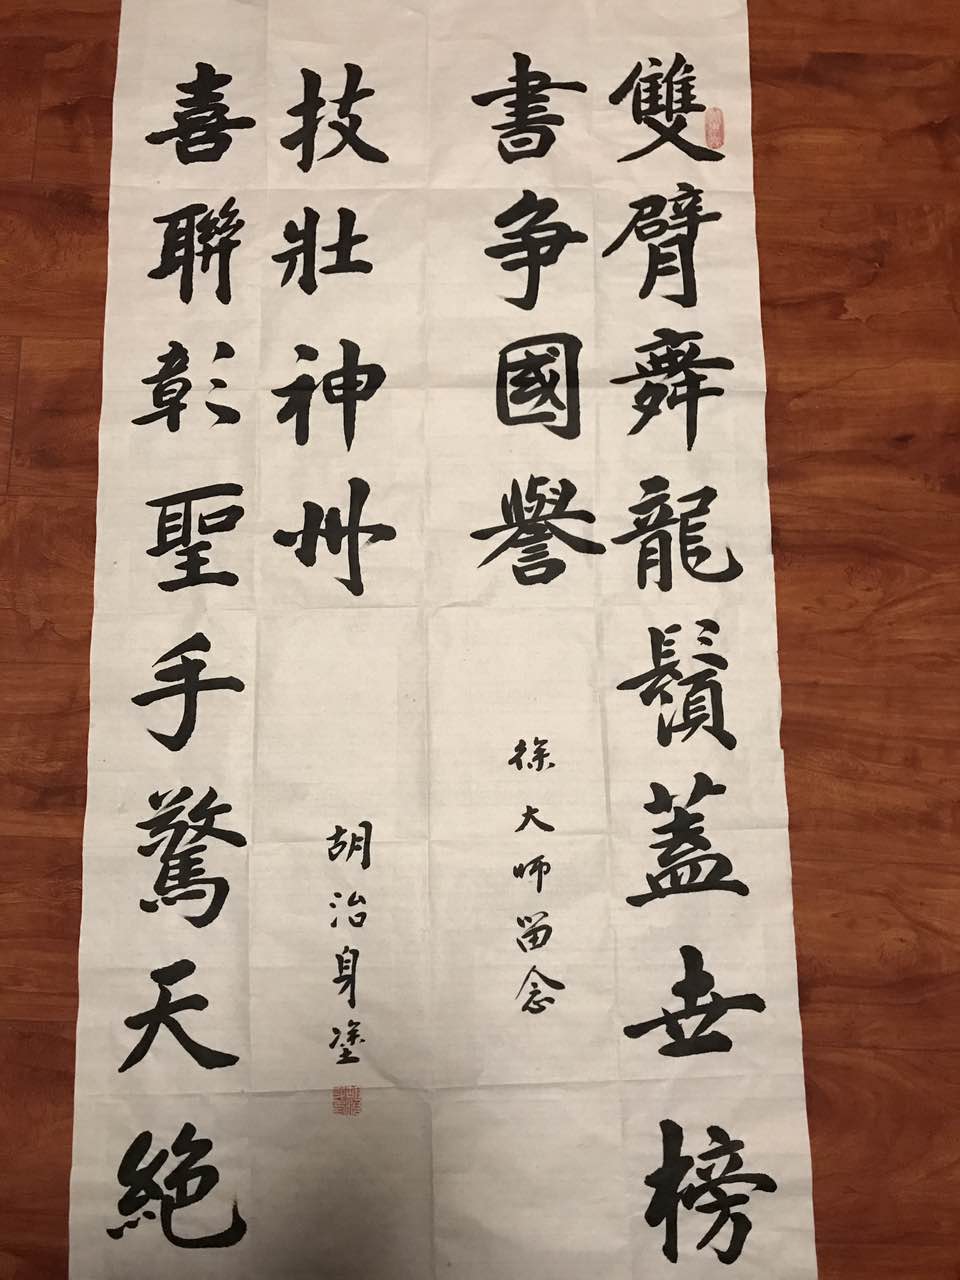 雙臂舞龍鬚蓋世榜
書争國譽
徐大師留念
喜聯彰聖手驚天絕
技壯神州
胡治身塗